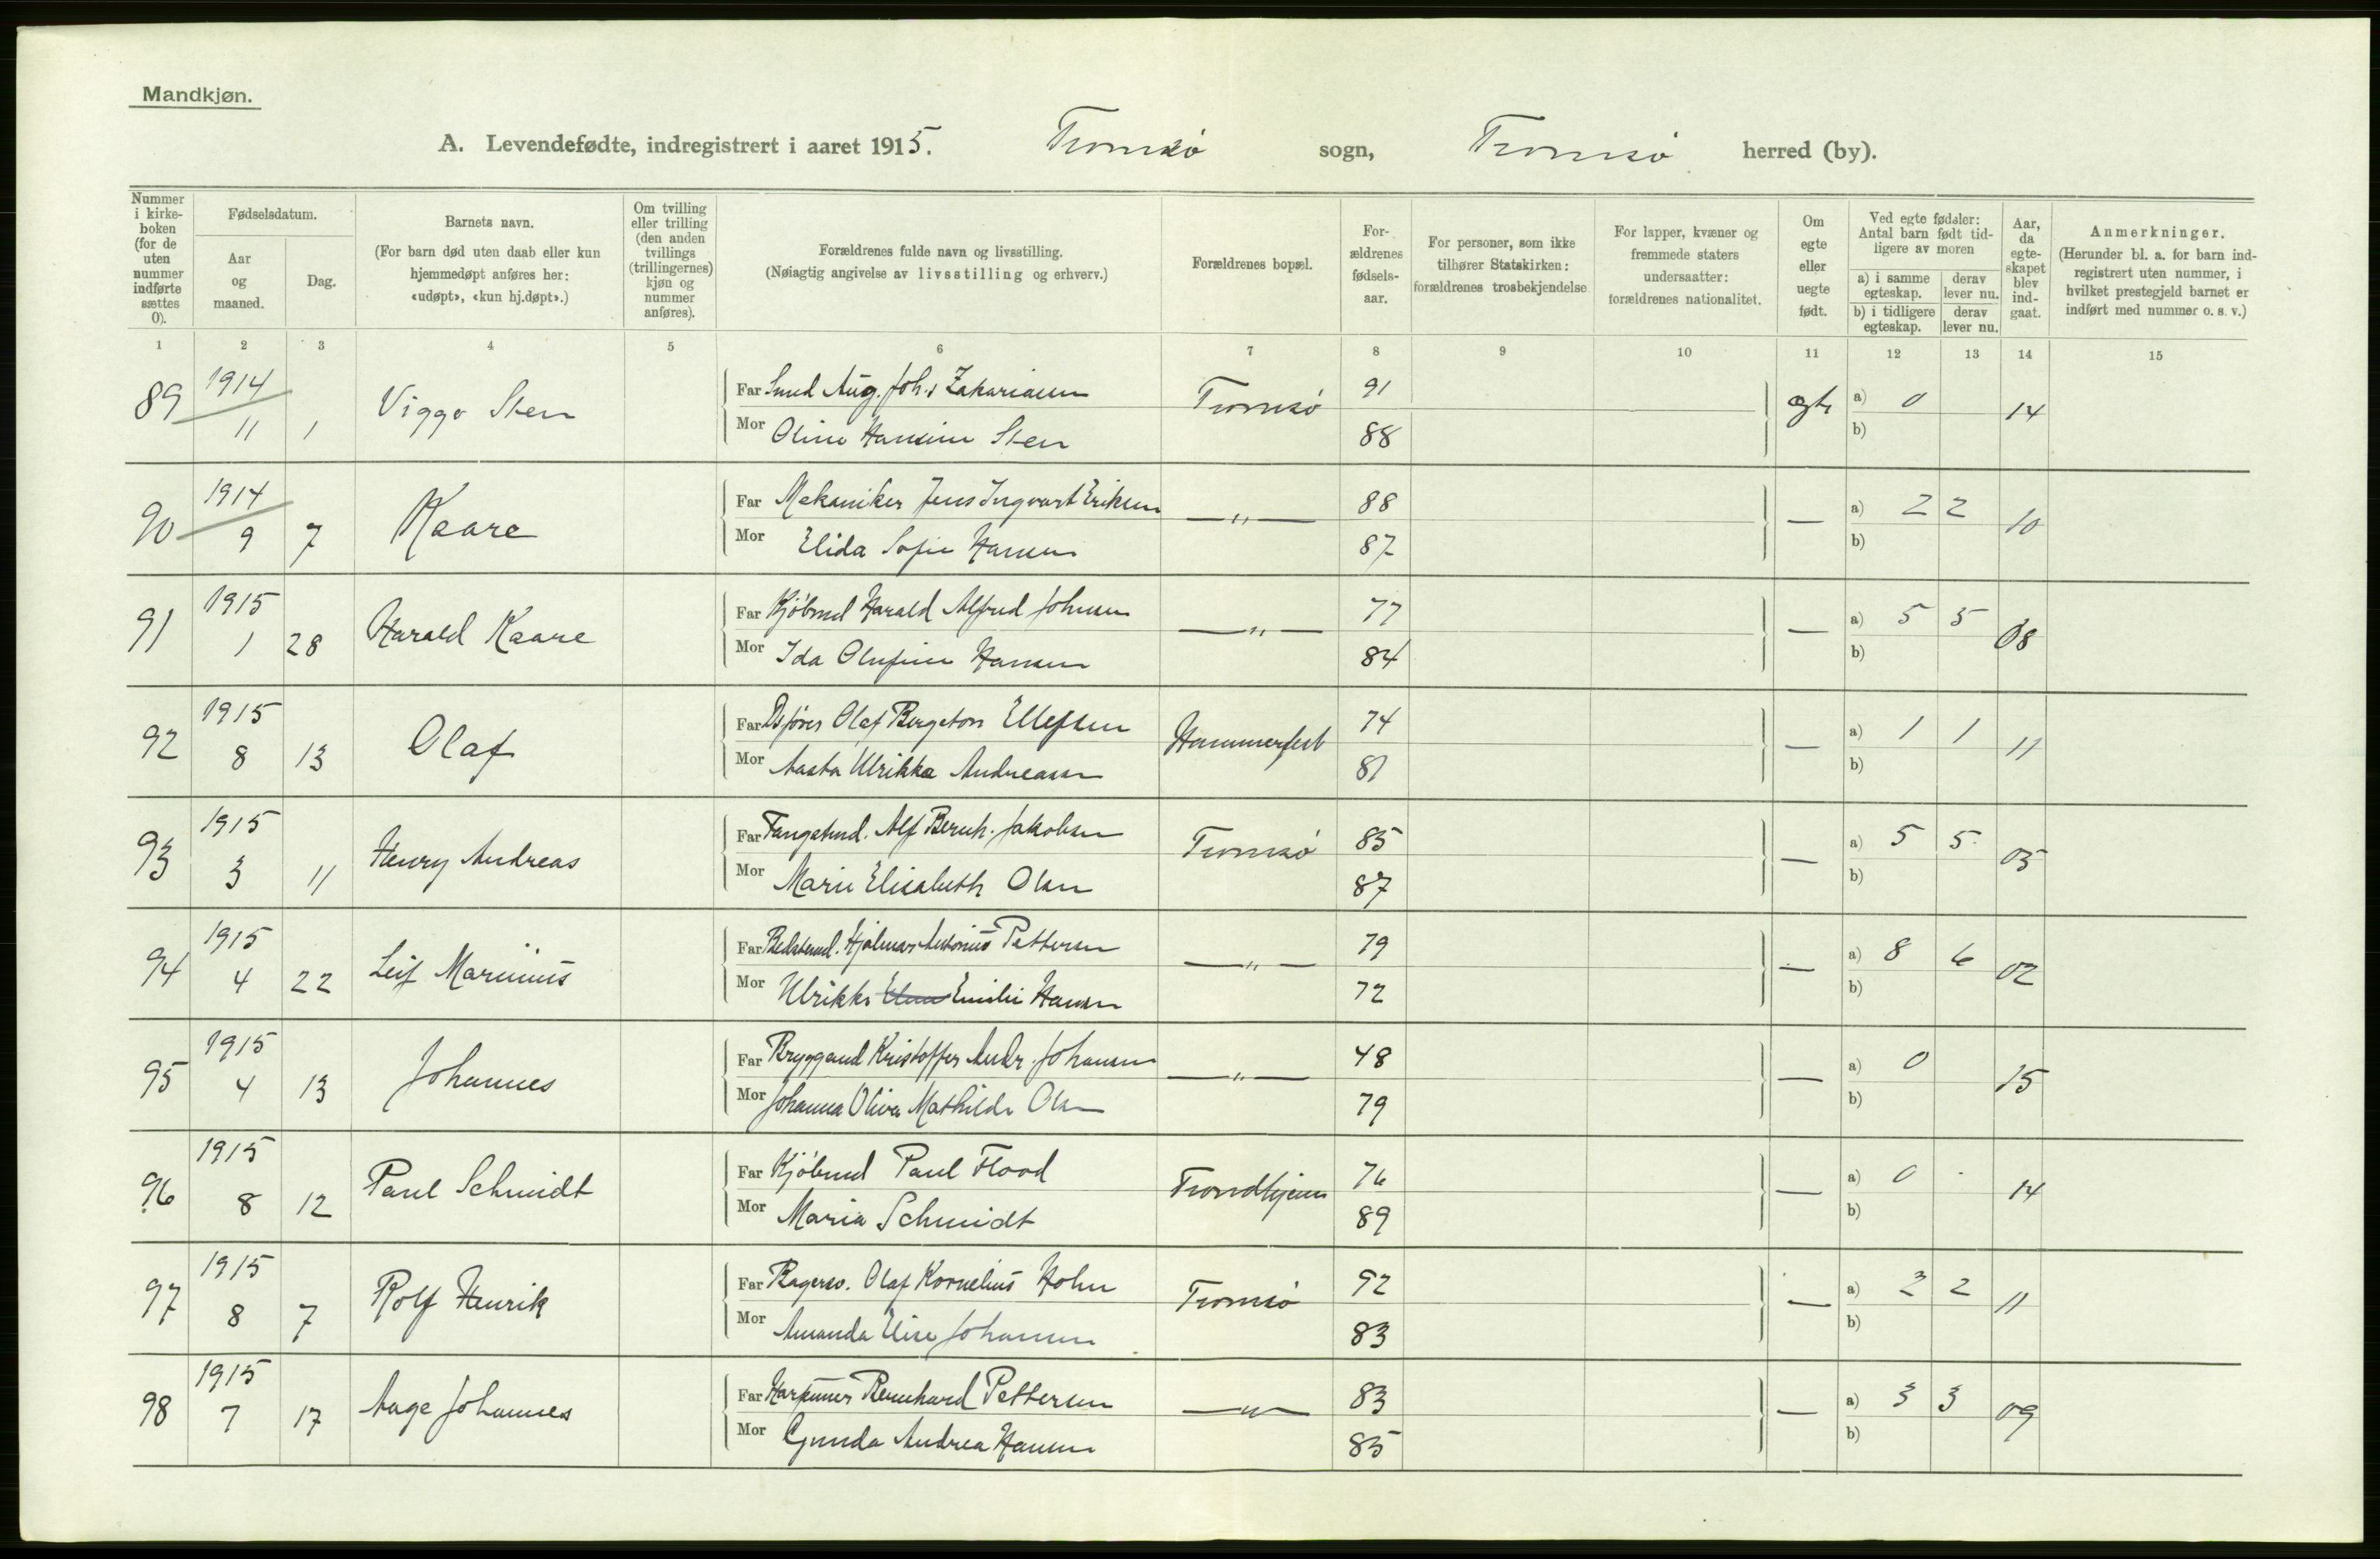 Mandkjøn.
A. Levendefødte, indregistrert i aaret 1915. Tromsø sogn, Tromsø herred (by).
Nummer i kirke-boken (for de uten nummer indførte sættes 0).
Fødselsdatum.
Aar og maaned.
Dag.
Barnets navn.
(For barn død uten daab eller kun hjemmedøpt anføres her: «udøpt», «kun hj.døpt».)
Om tvilling eller trilling (den anden tvillings (trillingernes) kjøn og nummer anføres).
Forældrenes fulde navn og livsstilling.
(Nøiagtig angivelse av livsstilling og erhverv.)
Forældrenes bopæl.
For-ældrenes fødsels-aar.
For personer, som ikke tilhører Statskirken: forældrenes trosbekjendelse
For lapper, kvæner og fremmede staters undersaatter: forældrenes nationalitet.
Om egte eller uegte født.
Ved egte fødsler: Antal barn født tid-ligere av moren
a) i samme egteskap.
derav lever nu.
b) i tidligere egteskap.
derav lever nu.
Aar, da egte-skapet blev ind-gaat.
Anmerkninger.
(Herunder bl. a. for barn ind-registrert uten nummer, i hvilket prestegjeld barnet er indført med nummer o. s. v.)
1 2 3 4 5 6 7 8 9 10 11 12 13 14 15
89 1914 11 1 Viggo Sten
Far Smed Aug. Joh.s Zakariassen Tromsø 91 egte a) 0 14
Mor Oline Hansine Sten 88 b)
90 1914 9 7 Kaare
Far Mekaniker Jens Ingvart Eriksen —„— 88 — a) 2 2 10
Mor Elida Sofie Hansen 87 b)
91 1915 1 28 Harald Kaare
Far Kjøbmd Harald Alfred Johnsen —„— 77 — a) 5 5 08
Mor Ida Olufine Hansen 84 b)
92 1915 8 13 Olaf
Far Olaf Bergeton Ellefsen Hammerfest 74 — a) 1 1 11
Mor Aasta Ulrikka Andreassen 81 b)
93 1915 3 11 Henry Andreas
Far Fangstmd. Alf Bernh. Jakobsen Tromsø 85 — a) 5 5 05
Mor Marie Elisabeth Olsen 87 b)
94 1915 4 22 Leif Marinius
Far Hjalmar Antonius Pettersen —„— 79 — a) 8 6 02
Mor Ulrikke Emilie Hansen 72 b)
95 1915 4 13 Johannes
Far Bryggemd Kristoffer Andr. Johansen —„— 48 — a) 0 15
Mor Johanna Oliva Mathilde Olsen 79 b)
96 1915 8 12 Paul Schmidt
Far Kjøbmd Paul Flood Trondhjem 76 — a) 0 14
Mor Maria Schmidt 89 b)
97 1915 8 7 Rolf Henrik
Far Bagersv. Olaf Kornelius Holm Tromsø 92 — a) 2 2 11
Mor Amanda Elise Johansen 83 b)
98 1915 7 17 Aage Johannes
Far Harpuner Bernhard Pettersen —„— 83 — a) 3 3 09
Mor Gunda Andrea Hansen 85 b)